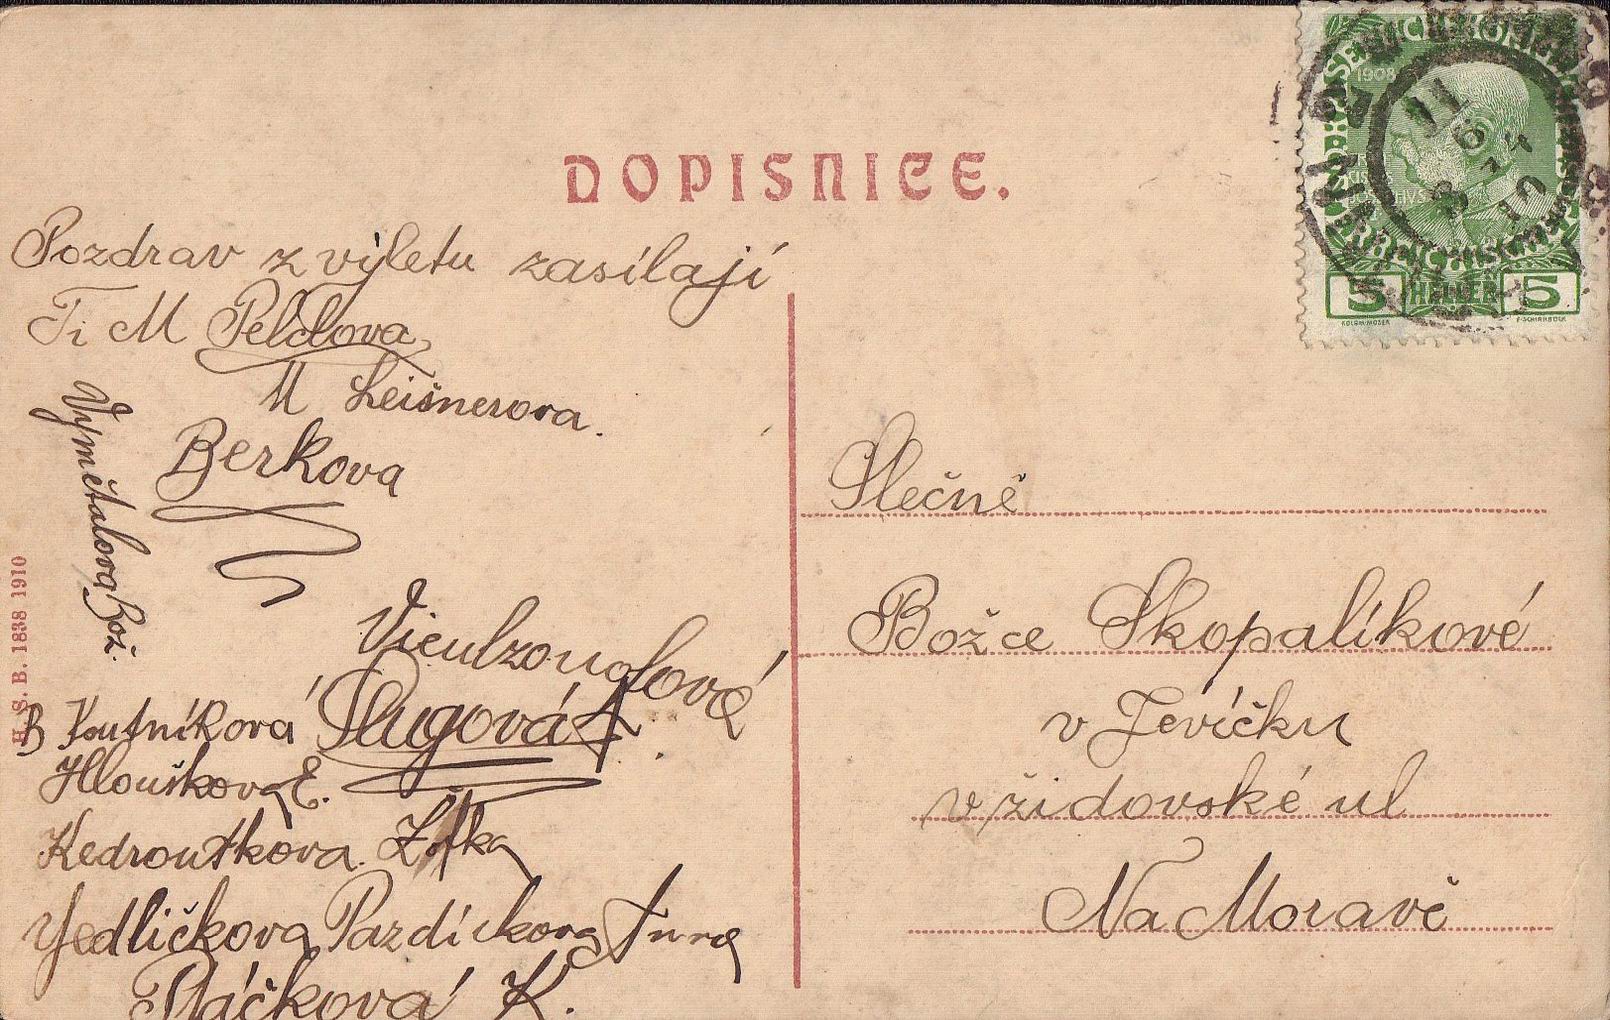 DOPISNICE.
Pozdrav z výletu zasílají
Ti M Peldova
M Leišnerova.
Berkova
Vymětalova Bož.
Plugová A
B Koutníková
Hloušková E.
Kedroutkova Žofka
Jedličkova Pazdírkova Anna
Ptáčková K.
H. S. B. 1838 1910
Slečně
Božce Skopalíkové
v Jevíčku
v židovské ul
Na Moravě
1908
5 HELLER 5
KOLOM. MOSER F. SCHIRNBÖCK